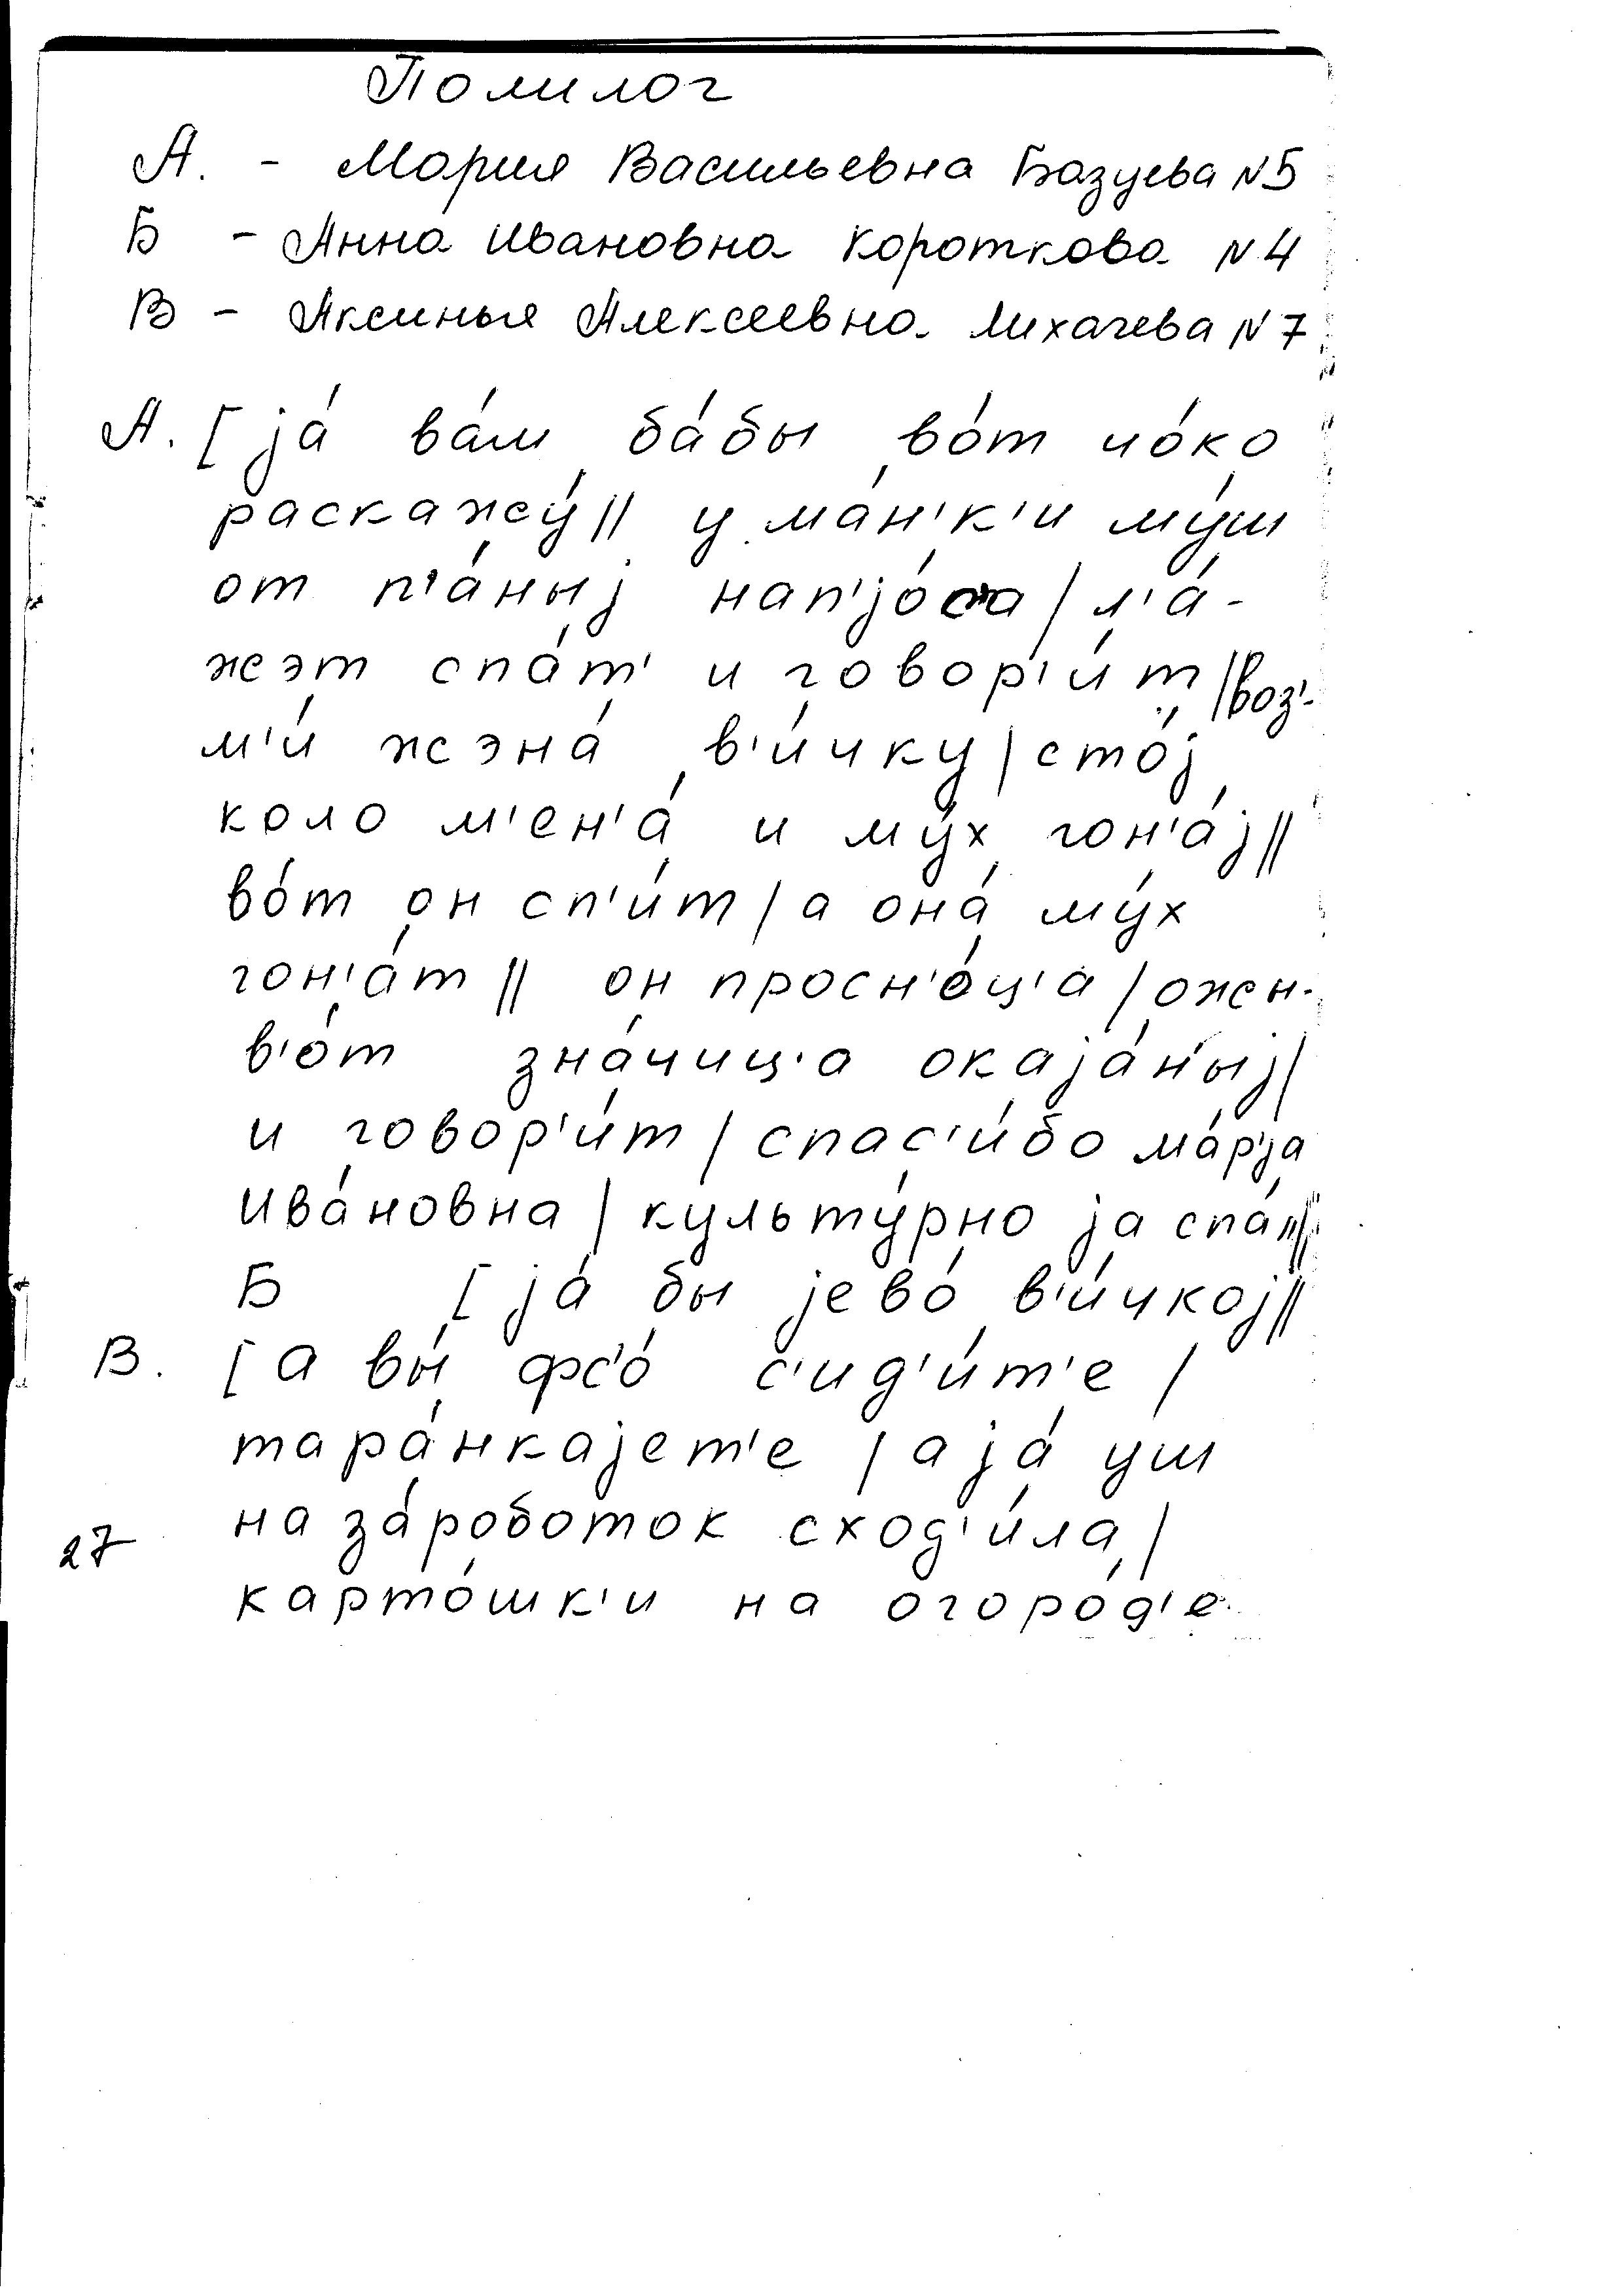 Полилог
А. - Мария Васильевна Базуева №5
Б - Анна Ивановна Короткова №4
В - Аксинья Алексеевна Лихачева №7
А. [ jа́ ва́м ба́бы во́т чо́ко
раскажу́ || у ма́н'к'и му́ш
от п'а́ныj нап'jо́са | л'а́-
жэт спа́т' и говор'и́т | воз'-
м'и́ жэна́ в'и́чку | сто́j
коло м'ен'а́ и му́х гон'а́j ||
во́т он сп'и́т | а она́ му́х
гон'а́т || он просн'о́ц'а | ожи-
в'о́т зна́чиц'а окаjа́ныj |
и говор'и́т | спас'и́бо ма́рjа
Ива́новна | культу́рно jа спа́л ||
Б [ jа́ бы jево́ в'и́чкоj ||
В. [ а вы́ фс'о́ с'ид'и́т'е |
тара́нкаjет'е | а jа́ уш
на за́роботок сход'и́ла |
27
карто́шк'и на огоро́д'е